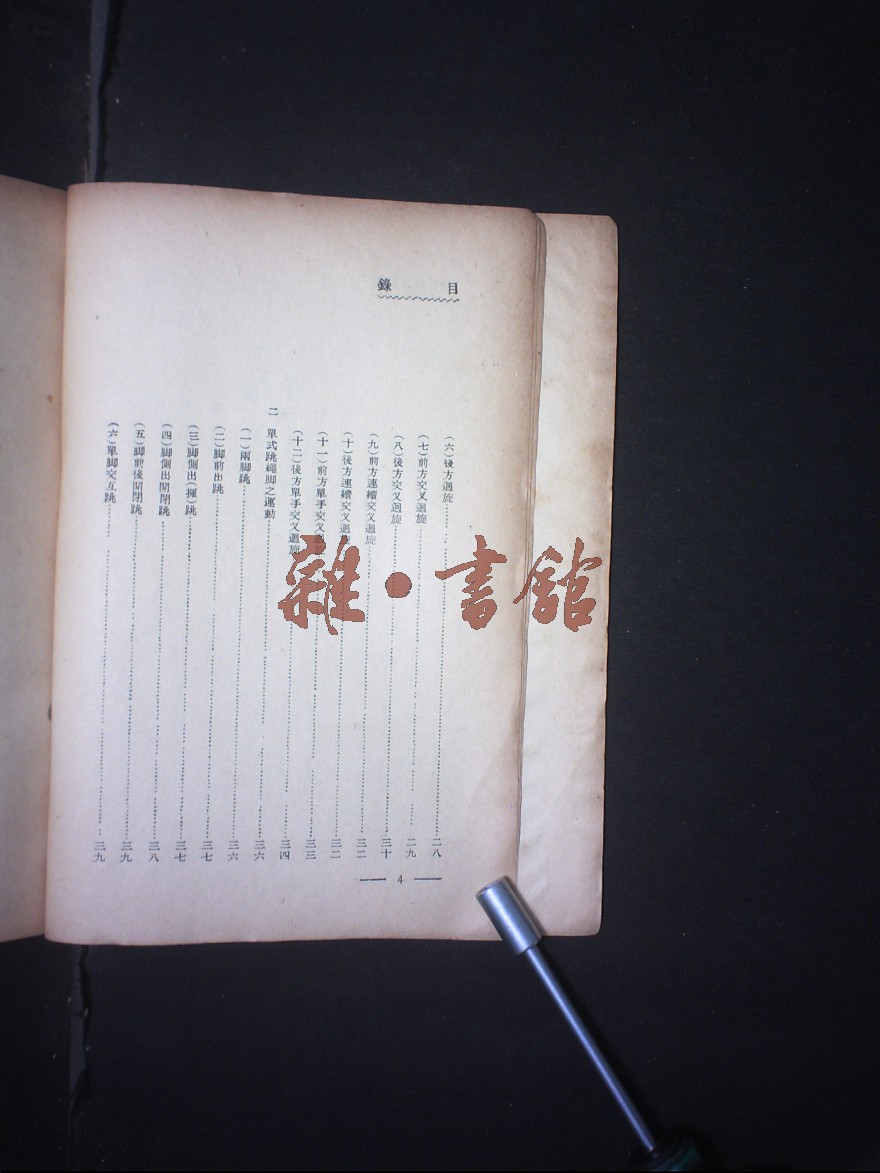 目錄
(六)後方迴旋 二八
(七)前方交叉迴旋 二九
(八)後方交叉迴旋 三十
(九)前方連續交叉迴旋 三二
(十)後方連續交叉迴旋 三二
(十一)前方單手交叉迴旋 三三
(十二)後方單手交叉迴旋 三四
二 單式跳繩脚之運動 三六
(一)兩脚跳 三六
(二)脚前出跳 三七
(三)脚側出(揮)跳 三七
(四)脚側出開閉跳 三八
(五)脚前後開閉跳 三九
(六)單脚交互跳 三九
— 4 —
雜·書館